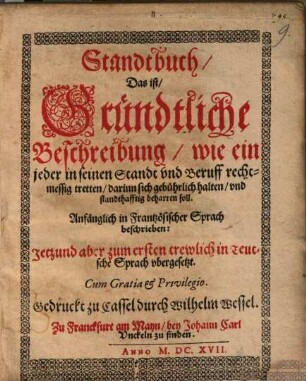 Standtbuch/
Das ist/
Gründtliche
Beschreibung / wie ein
jeder in seinen Standt vnd Beruff recht-
messig tretten / darinn sich gebührlich halten / vnd
standthafftig beharren soll.
Anfänglich in Frantzösischer Sprach
beschrieben:
Jetzund aber zum ersten trewlich in Teut-
sche Sprach vbergesetzt.
Cum Gratia & Privilegio.
Gedruckt zu Cassel durch Wilhelm Wessel.
Zu Franckfurt am Mayn / bey Johann Carl
Vnckeln zu finden.
ANNO M. DC. XVII.